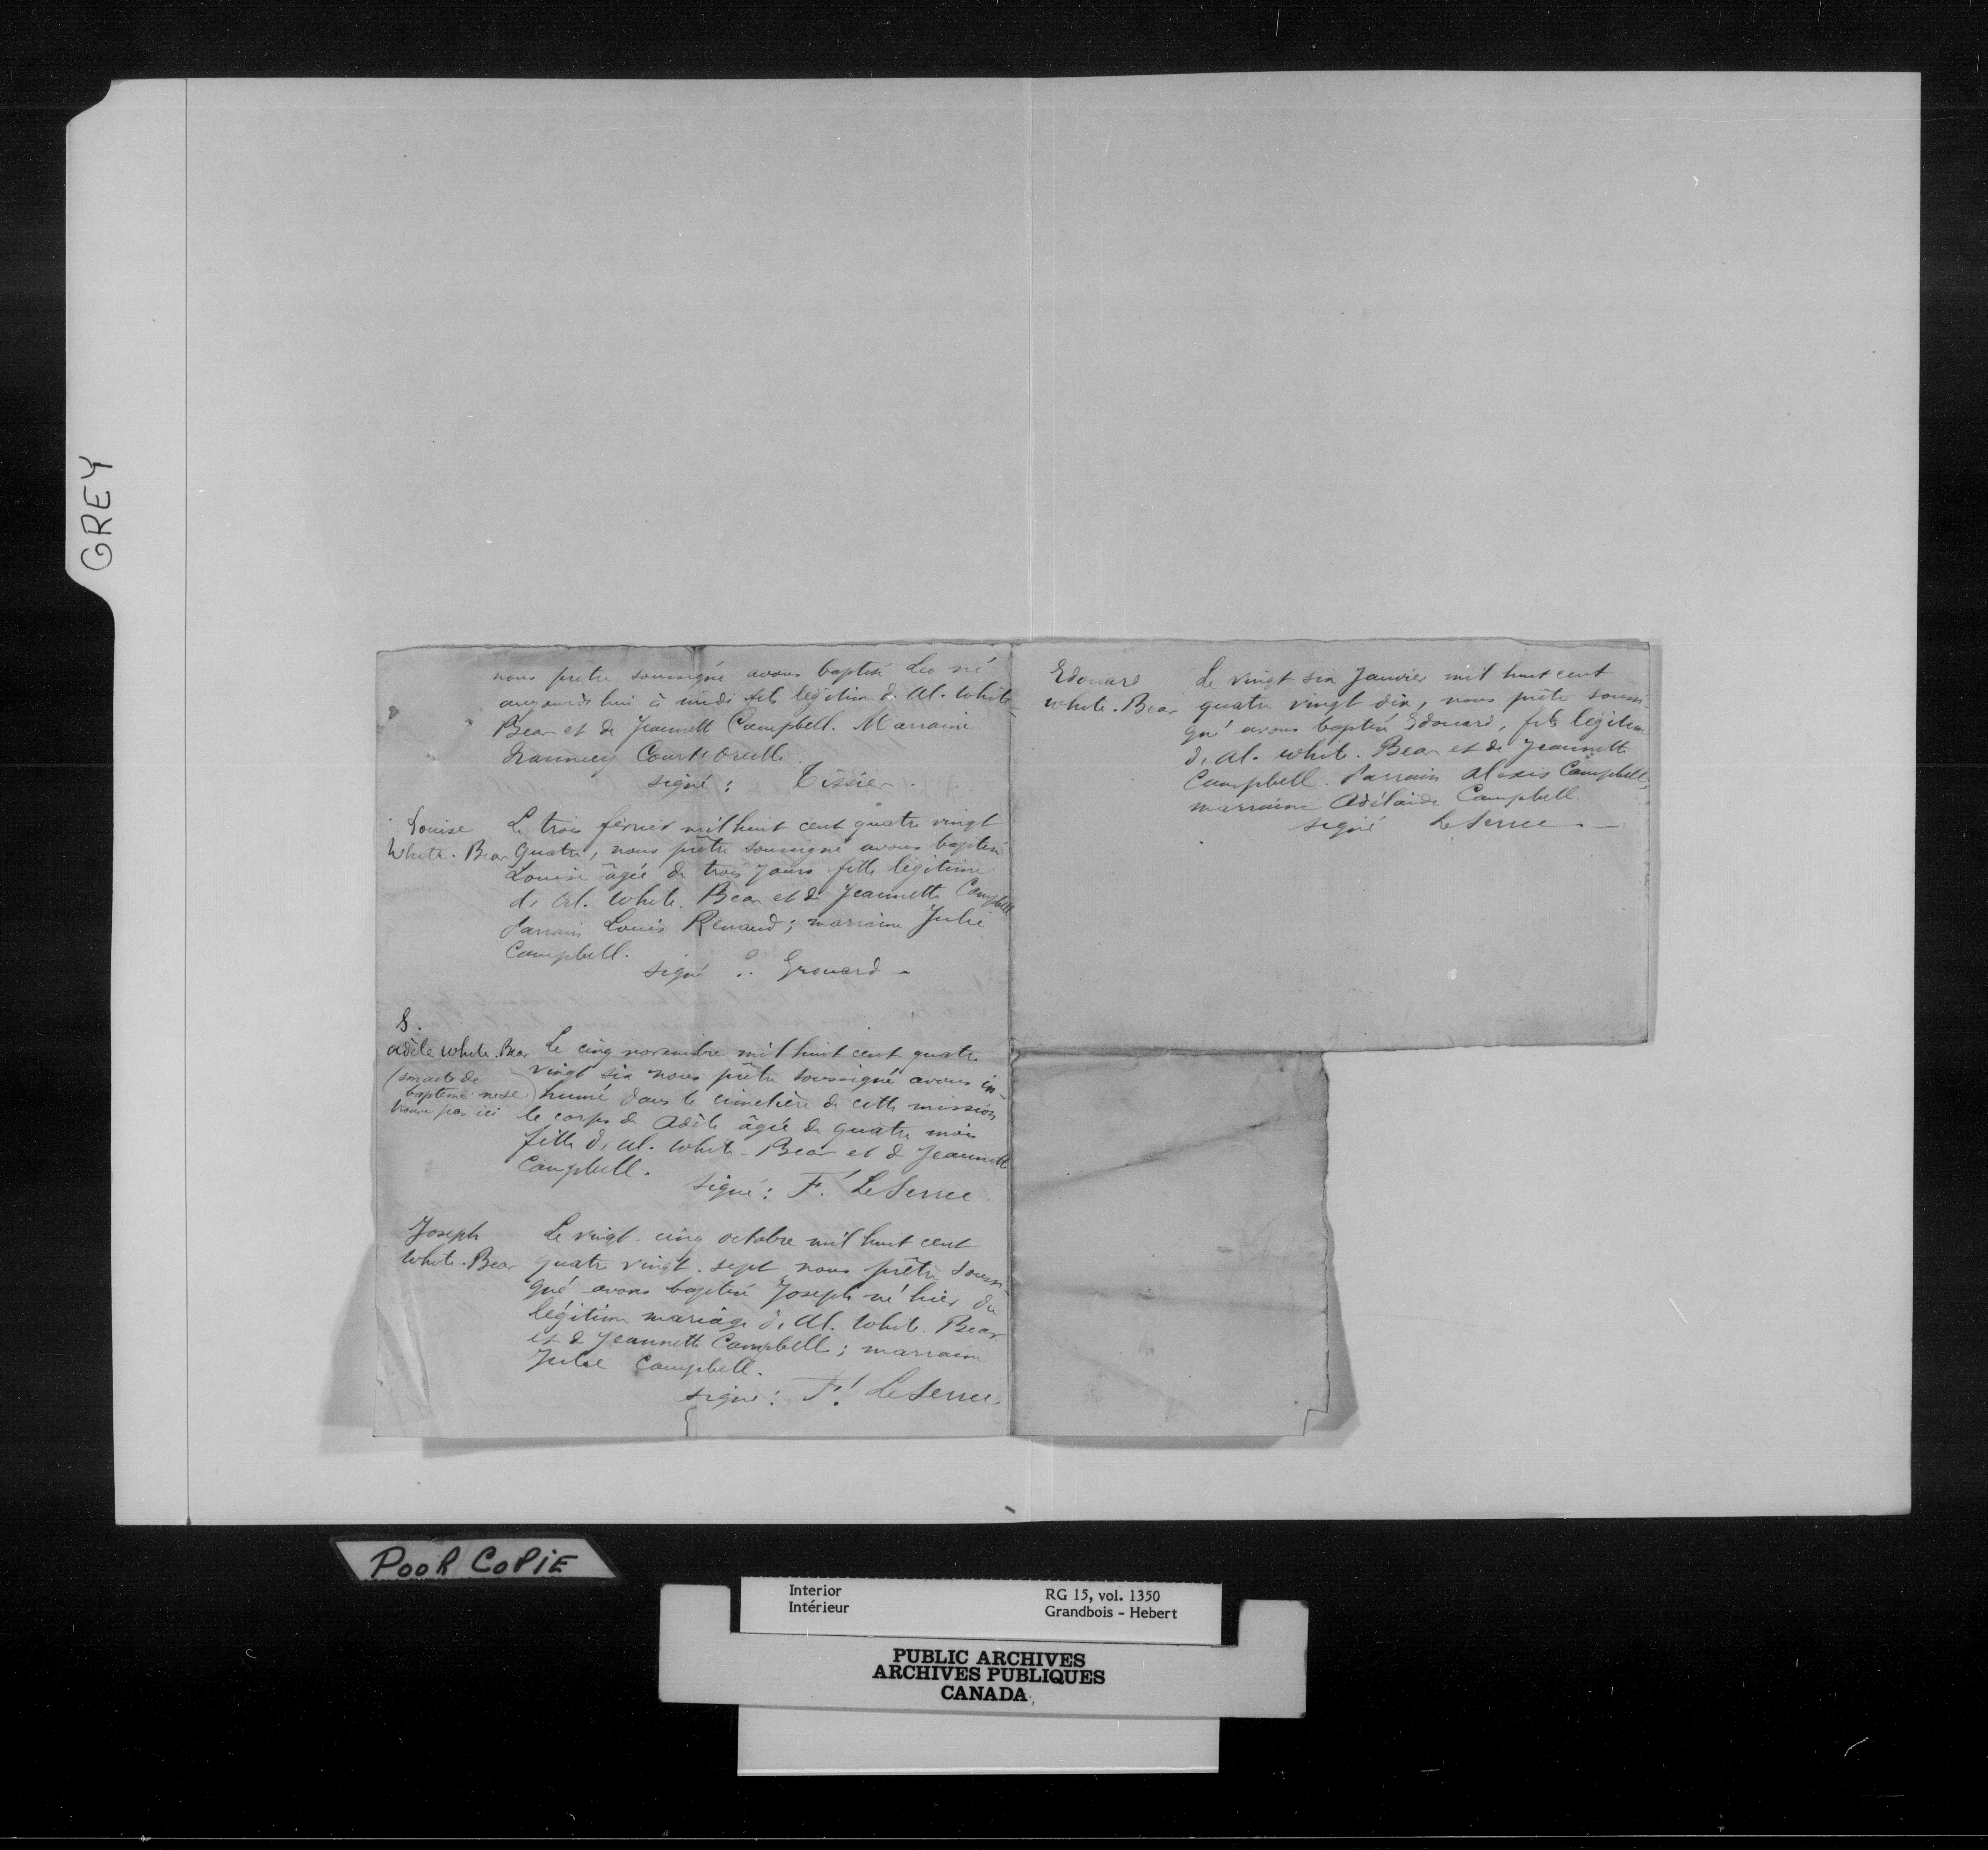 GREY
nous prêtre soussigné avons baptisé Leo né
aujourd'hui à midi fils légitime de Al. White-
Bear et de Jeannette Campbell. Marraine
Nanncy Courteoreille.
signé: Tissier.
Louise
White. Bear
Le trois février mil huit cent quatre vingt
quatre, nous prêtre soussigné avons baptisé
Louise âgée de trois jours fille légitime
de Al. White. Bear et de Jeannette Campbell
Parrain Louis Renaud; marraine Julie
Campbell.
signé E. Grouard -
S.
Adèle White. Bear
(son acte de
baptême ne se
trouve pas ici)
Le cinq novembre mil huit cent quatre
vingt six nous prêtre soussigné avons in-
humé dans le cimetière de cette mission
le corps de Adèle âgée de quatre mois
fille de Al. White-Bear et de Jeannette
Campbell.
signé: F. LeSerrec.
Joseph
White. Bear
Le vingt-cinq octobre mil huit cent
quatre vingt-sept nous prêtre soussi-
gné avons baptisé Joseph né hier du
légitime mariage de Al. White. Bear
et de Jeannette Campbell; marraine
Julie Campbell.
signé: F. LeSerrec
Edouard
White. Bear
Le vingt six Janvier mil huit cent
quatre vingt dix, nous prêtre soussi-
gné avons baptisé Edouard, fils légitime
de Al. White. Bear et de Jeannette
Campbell. Parrain Alexis Campbell,
marraine Adélaïde Campbell.
signé LeSerrec -
POOR COPIE
Interior
Intérieur
RG 15, vol. 1350
Grandbois - Hebert
PUBLIC ARCHIVES
ARCHIVES PUBLIQUES
CANADA